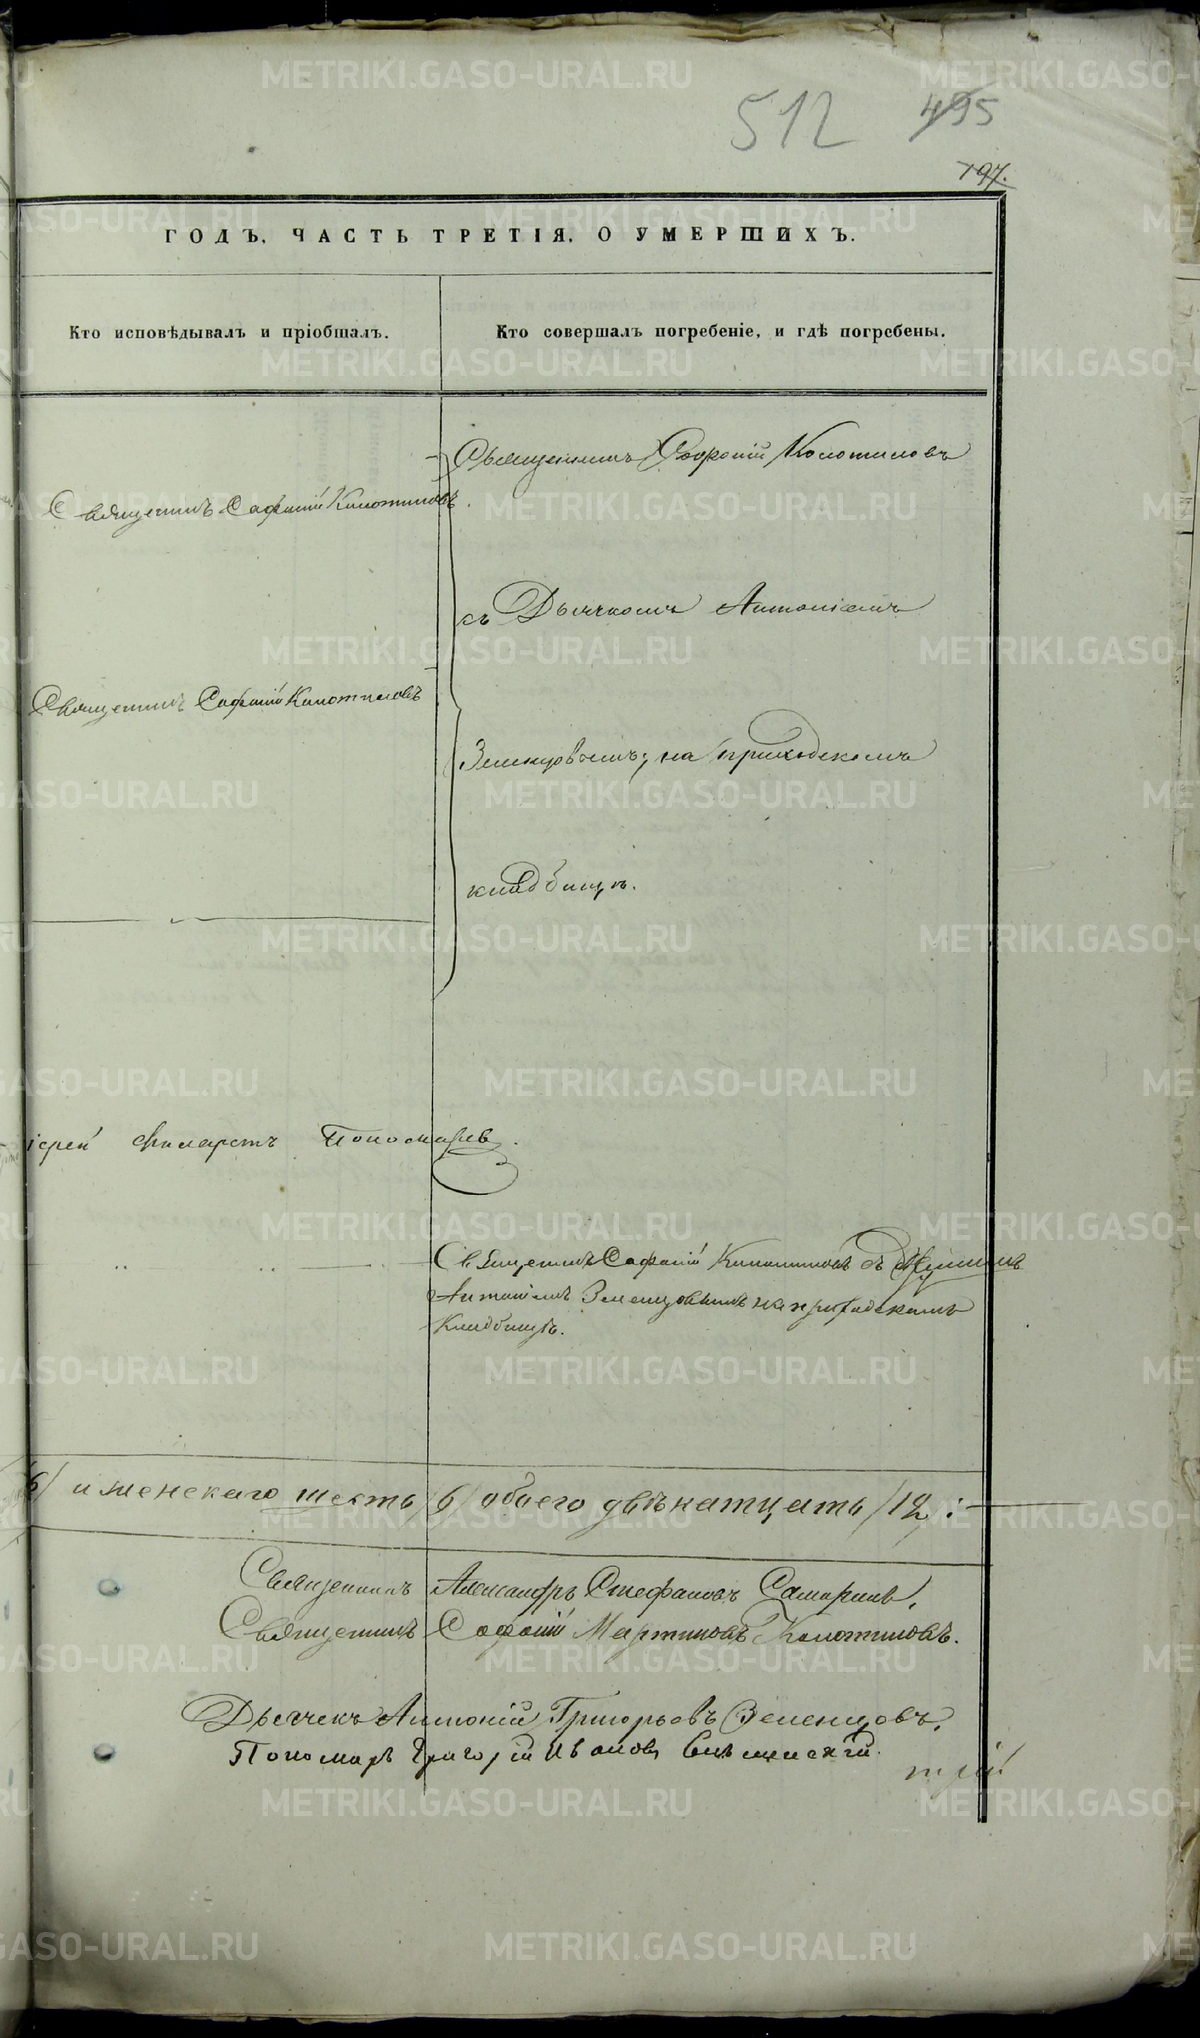 512 495
197.
ГОДЪ, ЧАСТЬ ТРЕТІЯ, О УМЕРШИХЪ.
Кто исповѣдывалъ и пріобщалъ.
Кто совершалъ погребеніе, и гдѣ погребены.
Священникъ Софроній Колотиловъ
Священникъ Софоній Колотиловъ.
съ Дьячкомъ Антоніемъ
Священникъ Софоній Колотиловъ
Зеленцовымъ, на приходскомъ
кладбищѣ.
іерей Филаретъ Пономарев.
Священникъ Софоній Колотиловъ съ
Антоніемъ Зеленцовымъ на приходскомъ
кладбищѣ.
6/ и женскаго шесть /6/ обоего двѣнатцать /12/:
Священникъ Александръ Стефановъ Самаринъ.
Священникъ Софоній Мартиновъ Колотиловъ.
Дьячекъ Антоній Григорьевъ Зеленцовъ.
Пономарь Григорій Ивановъ
трій
METRIKI.GASO-URAL.RU